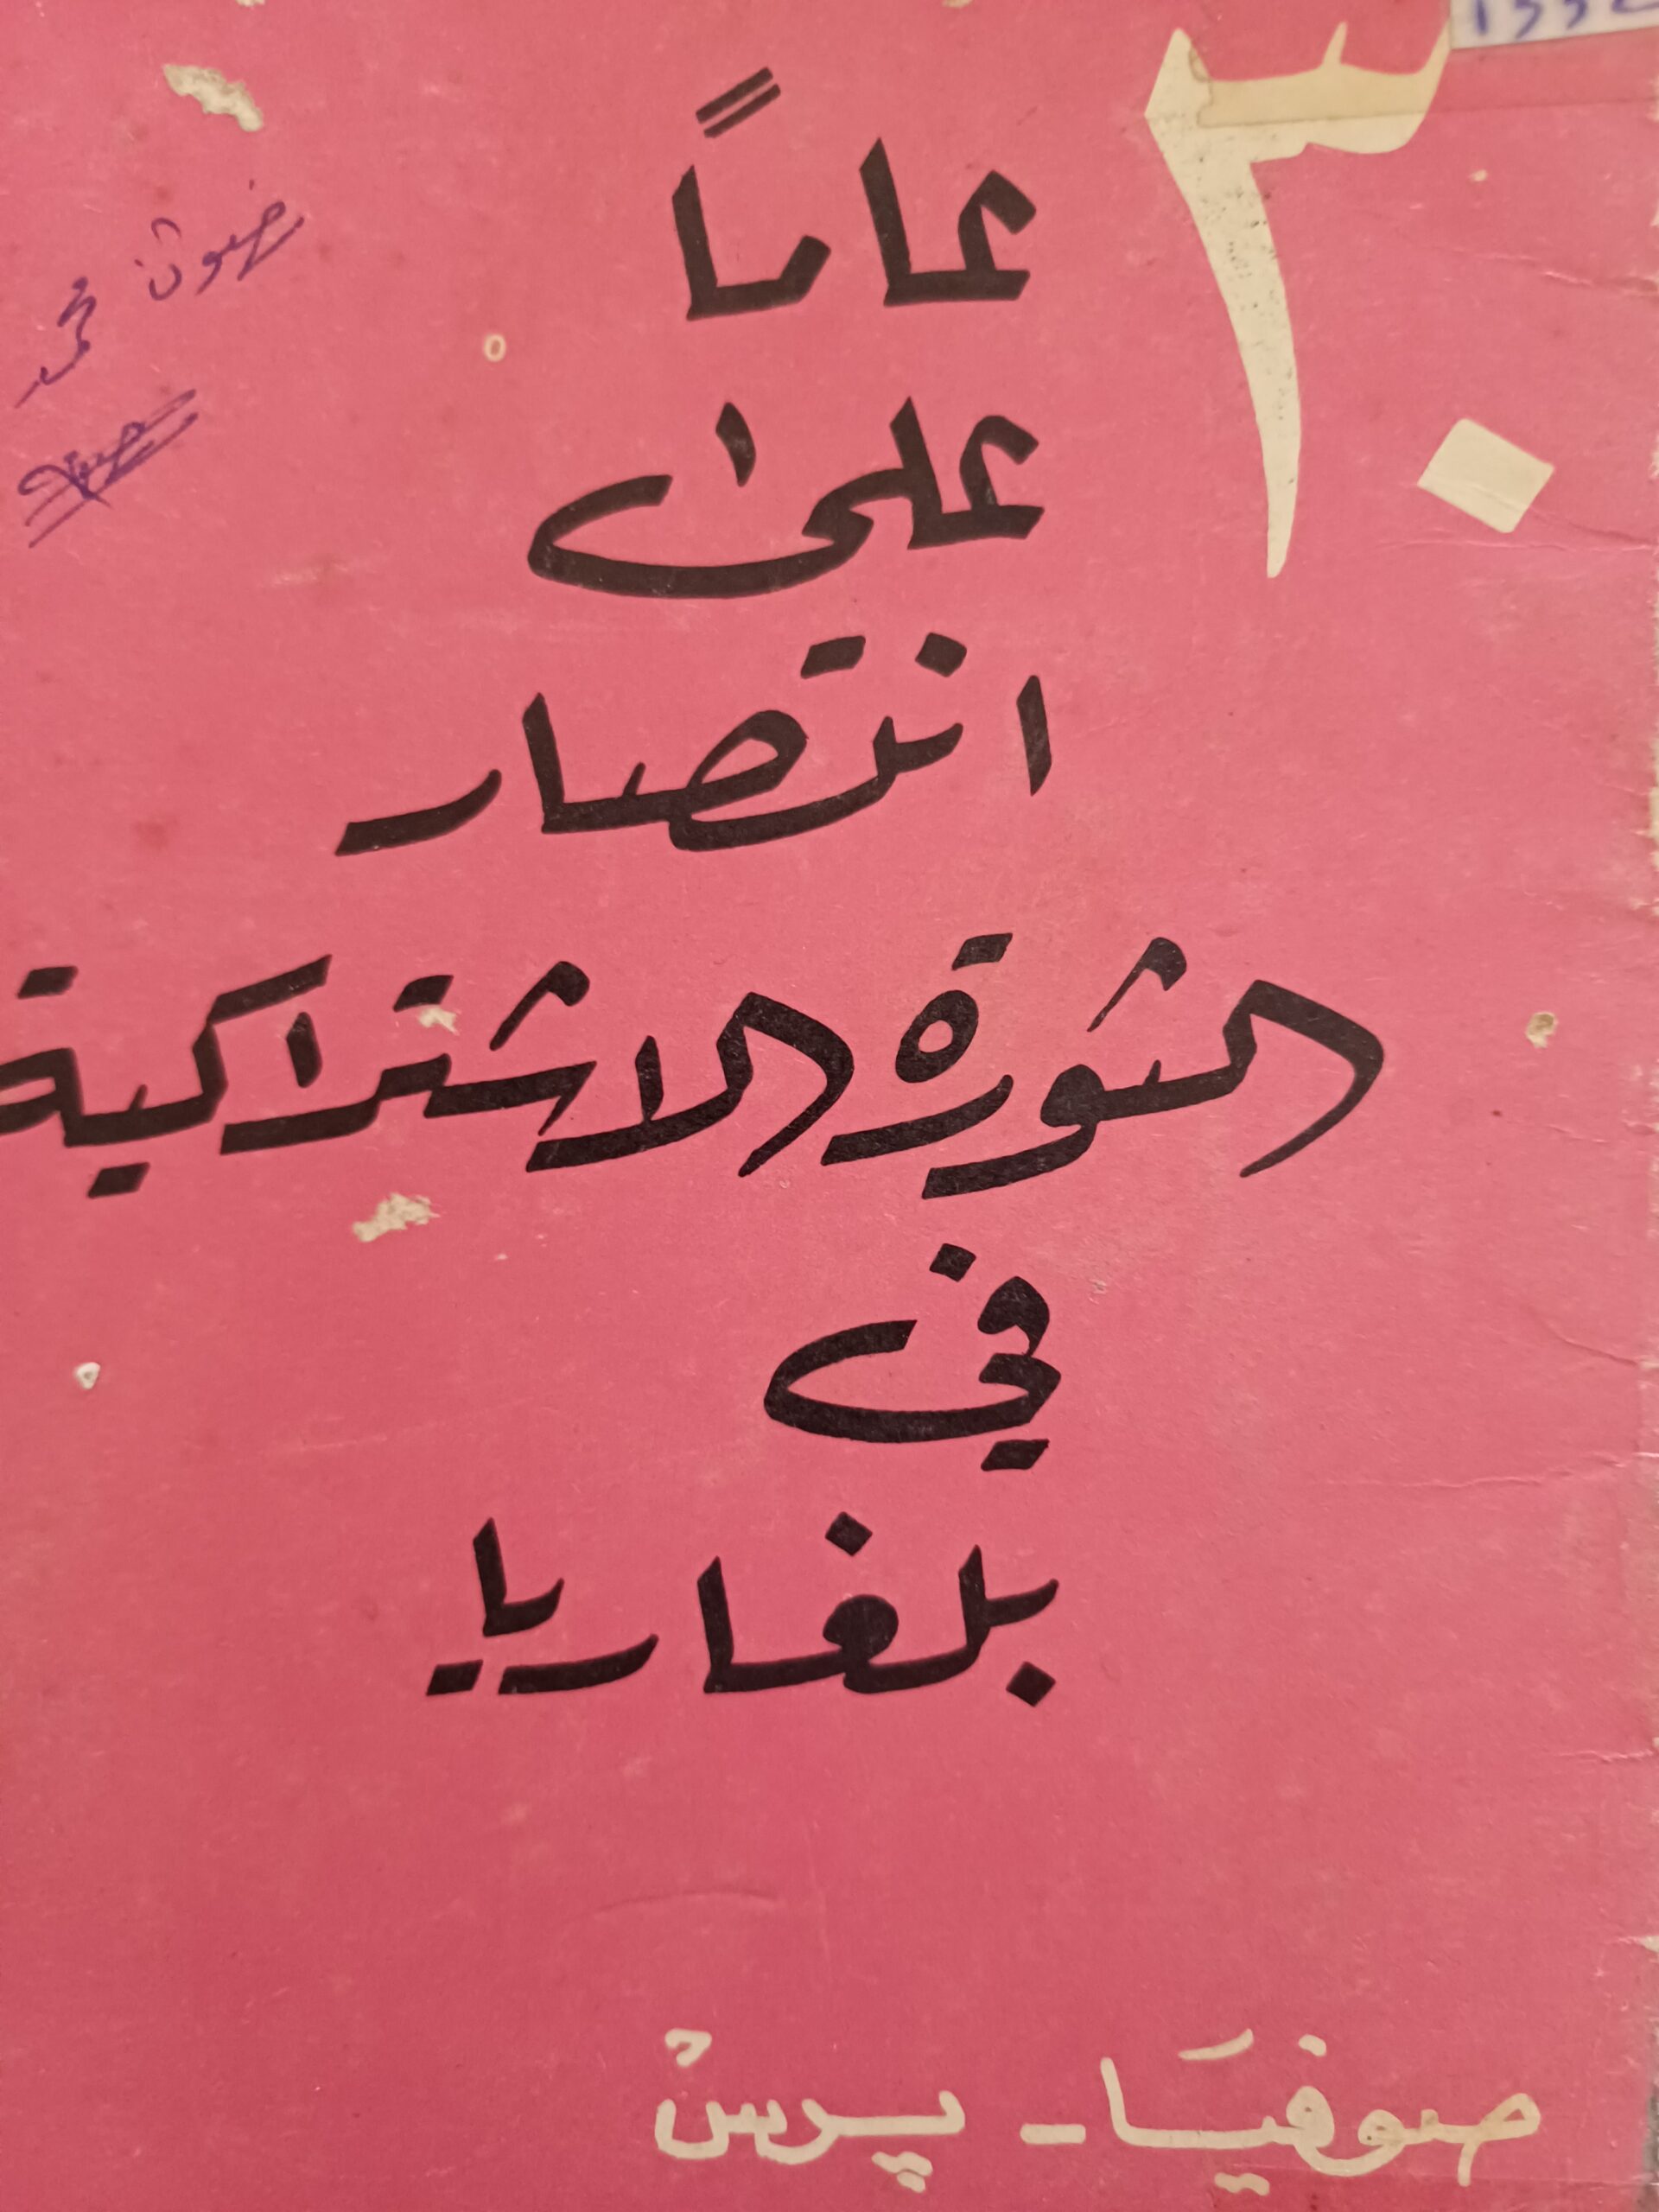 ٣٠
عاماً
على
انتصار
الثورة الاشتراكية
في
بلغاريا
صوفيَا - پرسْ